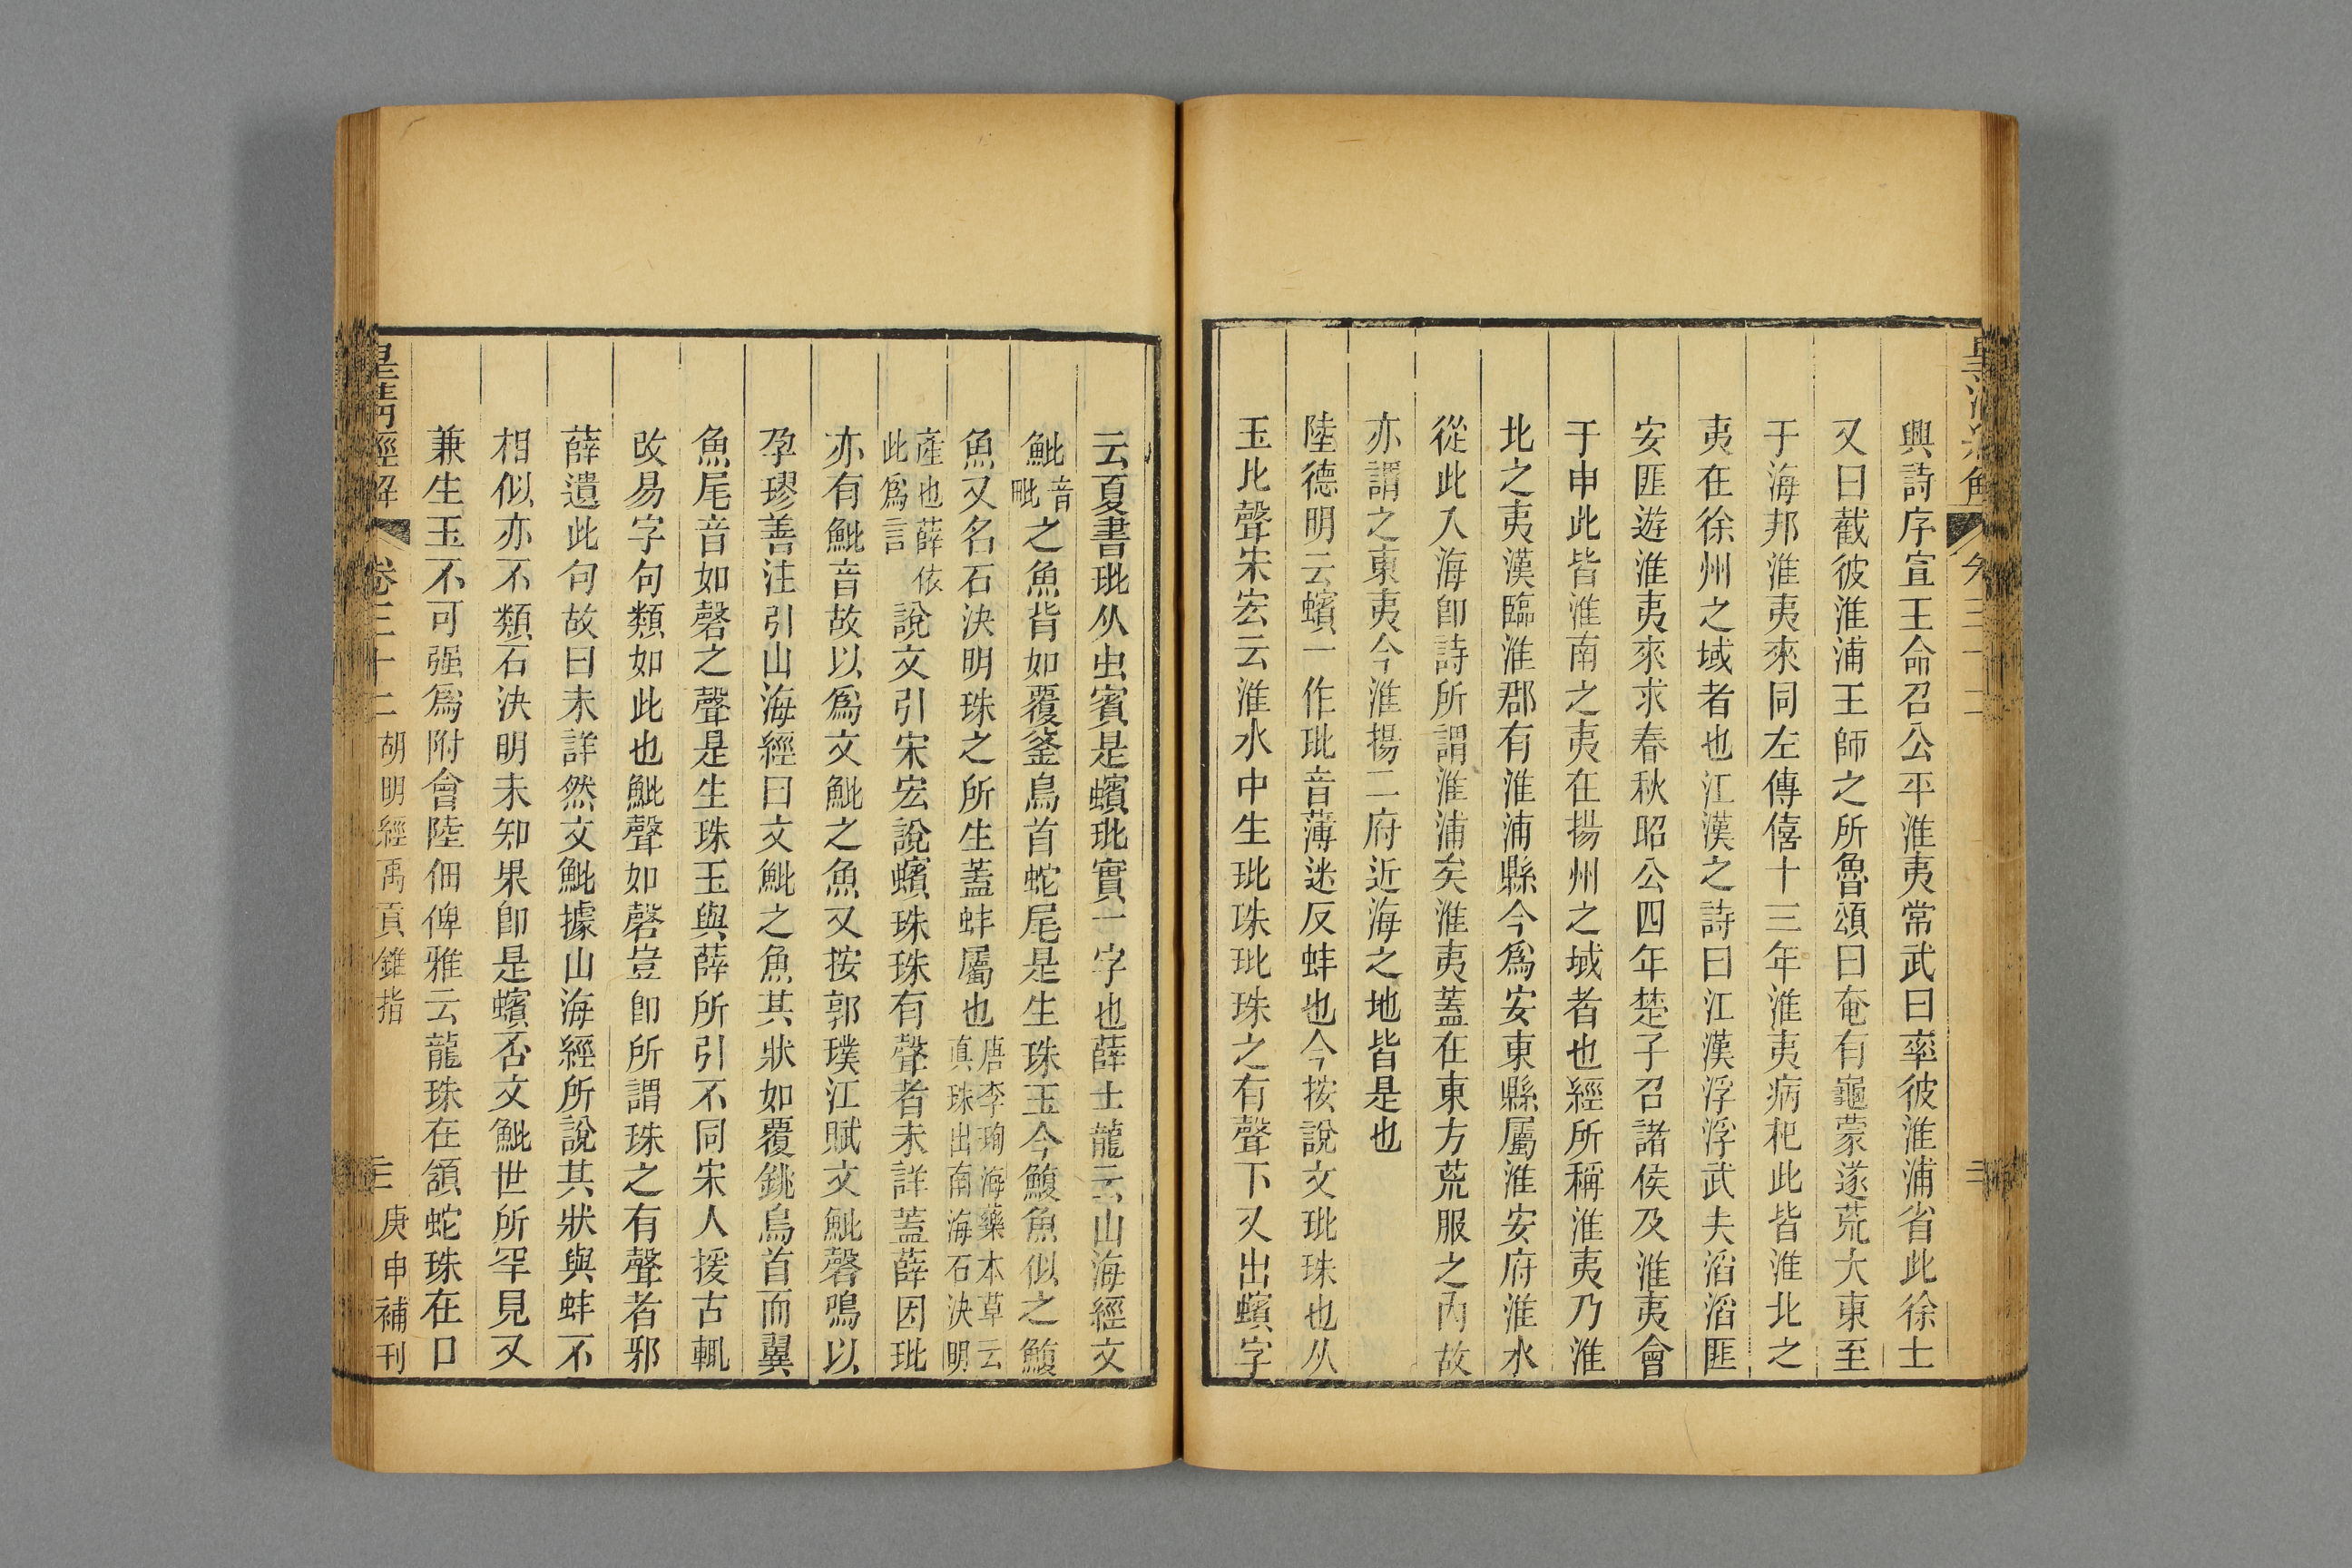 興詩序宣王命召公平淮夷常武曰率彼淮浦省此徐土
又曰截彼淮浦王師之所魯頌曰奄有龜蒙遂荒大東至
于海邦淮夷來同左傳僖十三年淮夷病杞此皆淮北之
夷在徐州之域者也江漢之詩曰江漢浮浮武夫滔滔匪
安匪遊淮夷來求春秋昭公四年楚子召諸侯及淮夷會
于申此皆淮南之夷在揚州之域者也經所稱淮夷乃淮
北之夷漢臨淮郡有淮浦縣今爲安東縣屬淮安府淮水
從此入海卽詩所謂淮浦矣淮夷蓋在東方荒服之內故
亦謂之東夷今淮揚二府近海之地皆是也
陸德明云蠙一作玭音薄迷反蚌也今按說文玭珠也从
玉比聲宋宏云淮水中生玭珠玭珠之有聲下又出蠙字
云夏書玭从虫賓是蠙玭實一字也薛士龍云山海經文
䰷音毗之魚背如覆釜鳥首蛇尾是生珠玉今鰒魚似之鰒
魚又名石決明珠之所生蓋蚌屬也唐李珣海藥本草云真珠出南海石決明
產也薛依此爲言說文引宋宏說蠙珠珠有聲者未詳蓋薛因玭
亦有䰷音故以爲文䰷之魚又按郭璞江賦文䰷磬鳴以
孕璆善注引山海經曰文䰷之魚其狀如覆銚鳥首而翼
魚尾音如磬之聲是生珠玉與薛所引不同宋人援古輒
改易字句類如此也䰷聲如磬豈卽所謂珠之有聲者邪
薛遺此句故曰未詳然文䰷據山海經所說其狀與蚌不
相似亦不類石決明未知果卽是蠙否文䰷世所罕見又
兼生玉不可强爲附會陸佃俾雅云龍珠在頷蛇珠在口
皇淸經解 卷三十二 胡明經禹貢錐指 三 庚申補刊